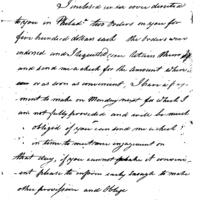 I inclosed in a cover directed
to you in Philada. two Orders on you for
five hundred dollars each the orders were
indorsed and I requested you return them
and send me a check for the amount when
was as soon as convenient. I have a pay
ment to make on Monday next for which I
am not fully provided and will be much
obliged if you can send me a check
in time to meet our engagement on
that day, if you cannot make it conveni
ent please to inform early enough to make
other provision and oblige